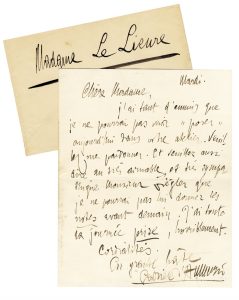 Madame Le Lieure
Mardi.
Chère Madame,
j'ai tant d'ennuis que
je ne pourrai pas vous "poser"
aujourd'hui dans votre atelier. Veuil-
lez me pardonner. Et veuillez aussi
dire au très aimable, et très sympa
thique Monsieur que
je ne pourrai pas lui donner les
notes avant demain. J'ai toute
la journée prise horriblement.
Cordialités.
En grande hâte